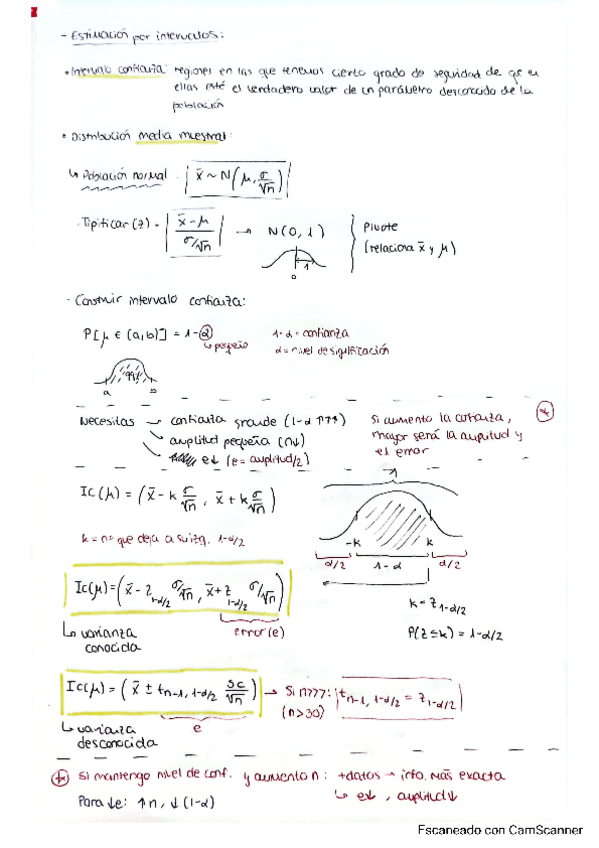 - Estimación por intervalos:
• Intervalo confianza: regiones en las que tenemos cierto grado de seguridad de que en
ellas esté el verdadero valor de un parámetro desconocido de la
población
• Distribución media muestral:
↳ Población normal. x̄ ~ N(μ, σ/√n)
· Tipificar (z) = (x̄ - μ)/(σ/√n) → N(0, 1)
Pivote
(relaciona x̄ y μ)
1
0
· Construir intervalo confianza:
P[μ ∈ (a,b)] = 1-α
↳ pequeño
1-α = confianza
α = nivel de significación
a b
Necesitas → confianza grande (1-α ↑↑↑)
→ amplitud pequeña (n↓)
→ e↓ (e = amplitud/2)
Si aumento la confianza,
mayor será la amplitud y
el error
(*)
Ic(μ) = (x̄ - k σ/√n, x̄ + k σ/√n)
k = nº que deja a su izq. 1-α/2
-k k
α/2 1-α α/2
Ic(μ) = (x̄ - z 1-α/2 σ/√n, x̄ + z 1-α/2 σ/√n)
↳ varianza
conocida
error (e)
k = z 1-α/2
P(z ≤ k) = 1-α/2
Ic(μ) = (x̄ ± t n-1, 1-α/2 sc/√n) → Si n↑↑↑: t n-1, 1-α/2 = z 1-α/2
(n>30)
↳ varianza
desconocida
e
(*) Si mantengo nivel de conf. y aumento n: +datos → info. más exacta
↳ e↓, amplitud↓
Para ↓e: ↑n, ↓(1-α)
Escaneado con CamScanner